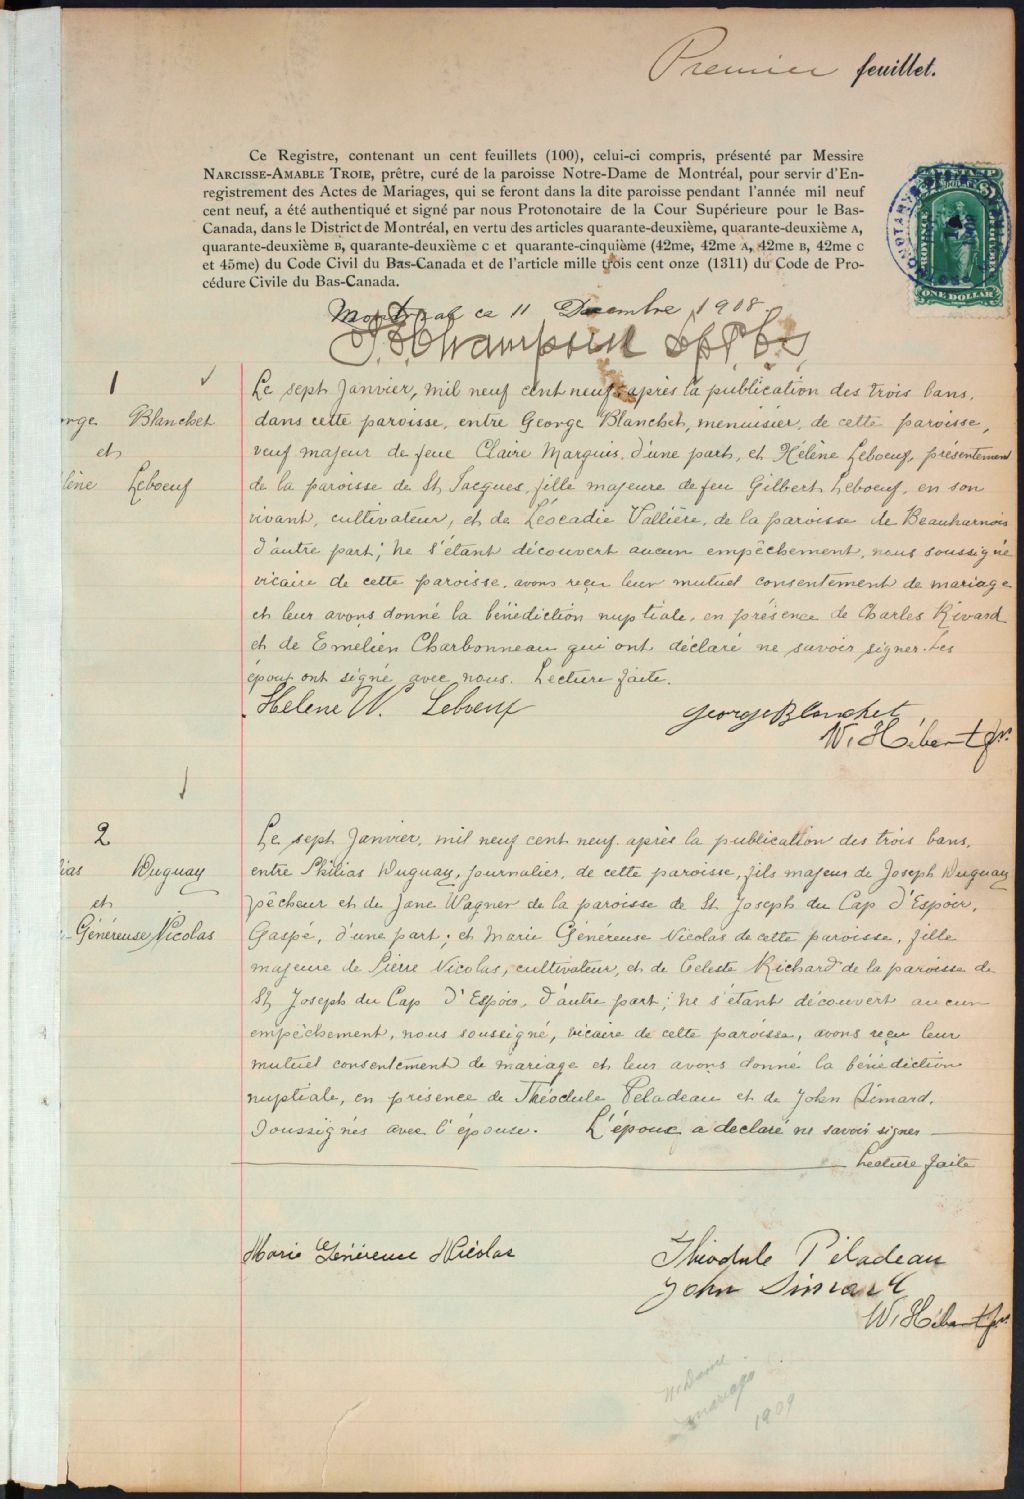 Premier feuillet.
Ce Registre, contenant un cent feuillets (100), celui-ci compris, présenté par Messire
NARCISSE-AMABLE TROIE, prêtre, curé de la paroisse Notre-Dame de Montréal, pour servir d'En-
registrement des Actes de Mariages, qui se feront dans la dite paroisse pendant l'année mil neuf
cent neuf, a été authentiqué et signé par nous Protonotaire de la Cour Supérieure pour le Bas-
Canada, dans le District de Montréal, en vertu des articles quarante-deuxième, quarante-deuxième A,
quarante-deuxième B, quarante-deuxième C et quarante-cinquième (42me, 42me A, 42me B, 42me C
et 45me) du Code Civil du Bas-Canada et de l'article mille trois cent onze (1311) du Code de Pro-
cédure Civile du Bas-Canada.
ONE DOLLAR
Montreal ce 11 Decembre 1908.
1
rge Blanchet
et
lène Leboeuf
Le sept Janvier, mil neuf cent neuf, après la publication des trois bans,
dans cette paroisse, entre George Blanchet, menuisier, de cette paroisse,
veuf majeur de feue Claire Marquis, d'une part, et Hélène Leboeuf, présentement
de la paroisse de St Jacques, fille majeure de feu Gilbert Leboeuf, en son
vivant, cultivateur, et de Léocadie Vallière, de la paroisse de Beauharnois
d'autre part; ne s'étant découvert aucun empêchement, nous soussigné
vicaire de cette paroisse, avons reçu leur mutuel consentement de mariage
et leur avons donné la bénédiction nuptiale, en présence de Charles Rivard
et de Emélien Charbonneau qui ont déclaré ne savoir signer. Les
époux ont signé avec nous. Lecture faite.
Helene W. Leboeuf
George Blanchet
W. Hébert ptr.
2
ias Duguay
et
Généreuse Nicolas
Le sept Janvier, mil neuf cent neuf, après la publication des trois bans,
entre Philias Duguay, journalier, de cette paroisse, fils majeur de Joseph Duguay
pêcheur et de Jane Wagner de la paroisse de St. Joseph du Cap d'Espoir,
Gaspé, d'une part; et Marie Généreuse Nicolas de cette paroisse, fille
majeure de Pierre Nicolas, cultivateur, et de Celeste Richard de la paroisse de
St Joseph du Cap d'Espoir, d'autre part; ne s'étant découvert aucun
empêchement, nous soussigné, vicaire de cette paroisse, avons reçu leur
mutuel consentement de mariage et leur avons donné la bénédiction
nuptiale, en présence de Théodule Peladeau et de John Simard,
soussignés avec l'épouse. L'époux a declaré ne savoir signer
Lecture faite
Marie Généreuse Nicolas
Théodule Péladeau
John Simard
W. Hébert ptr.
N. Dame
mariage
1909